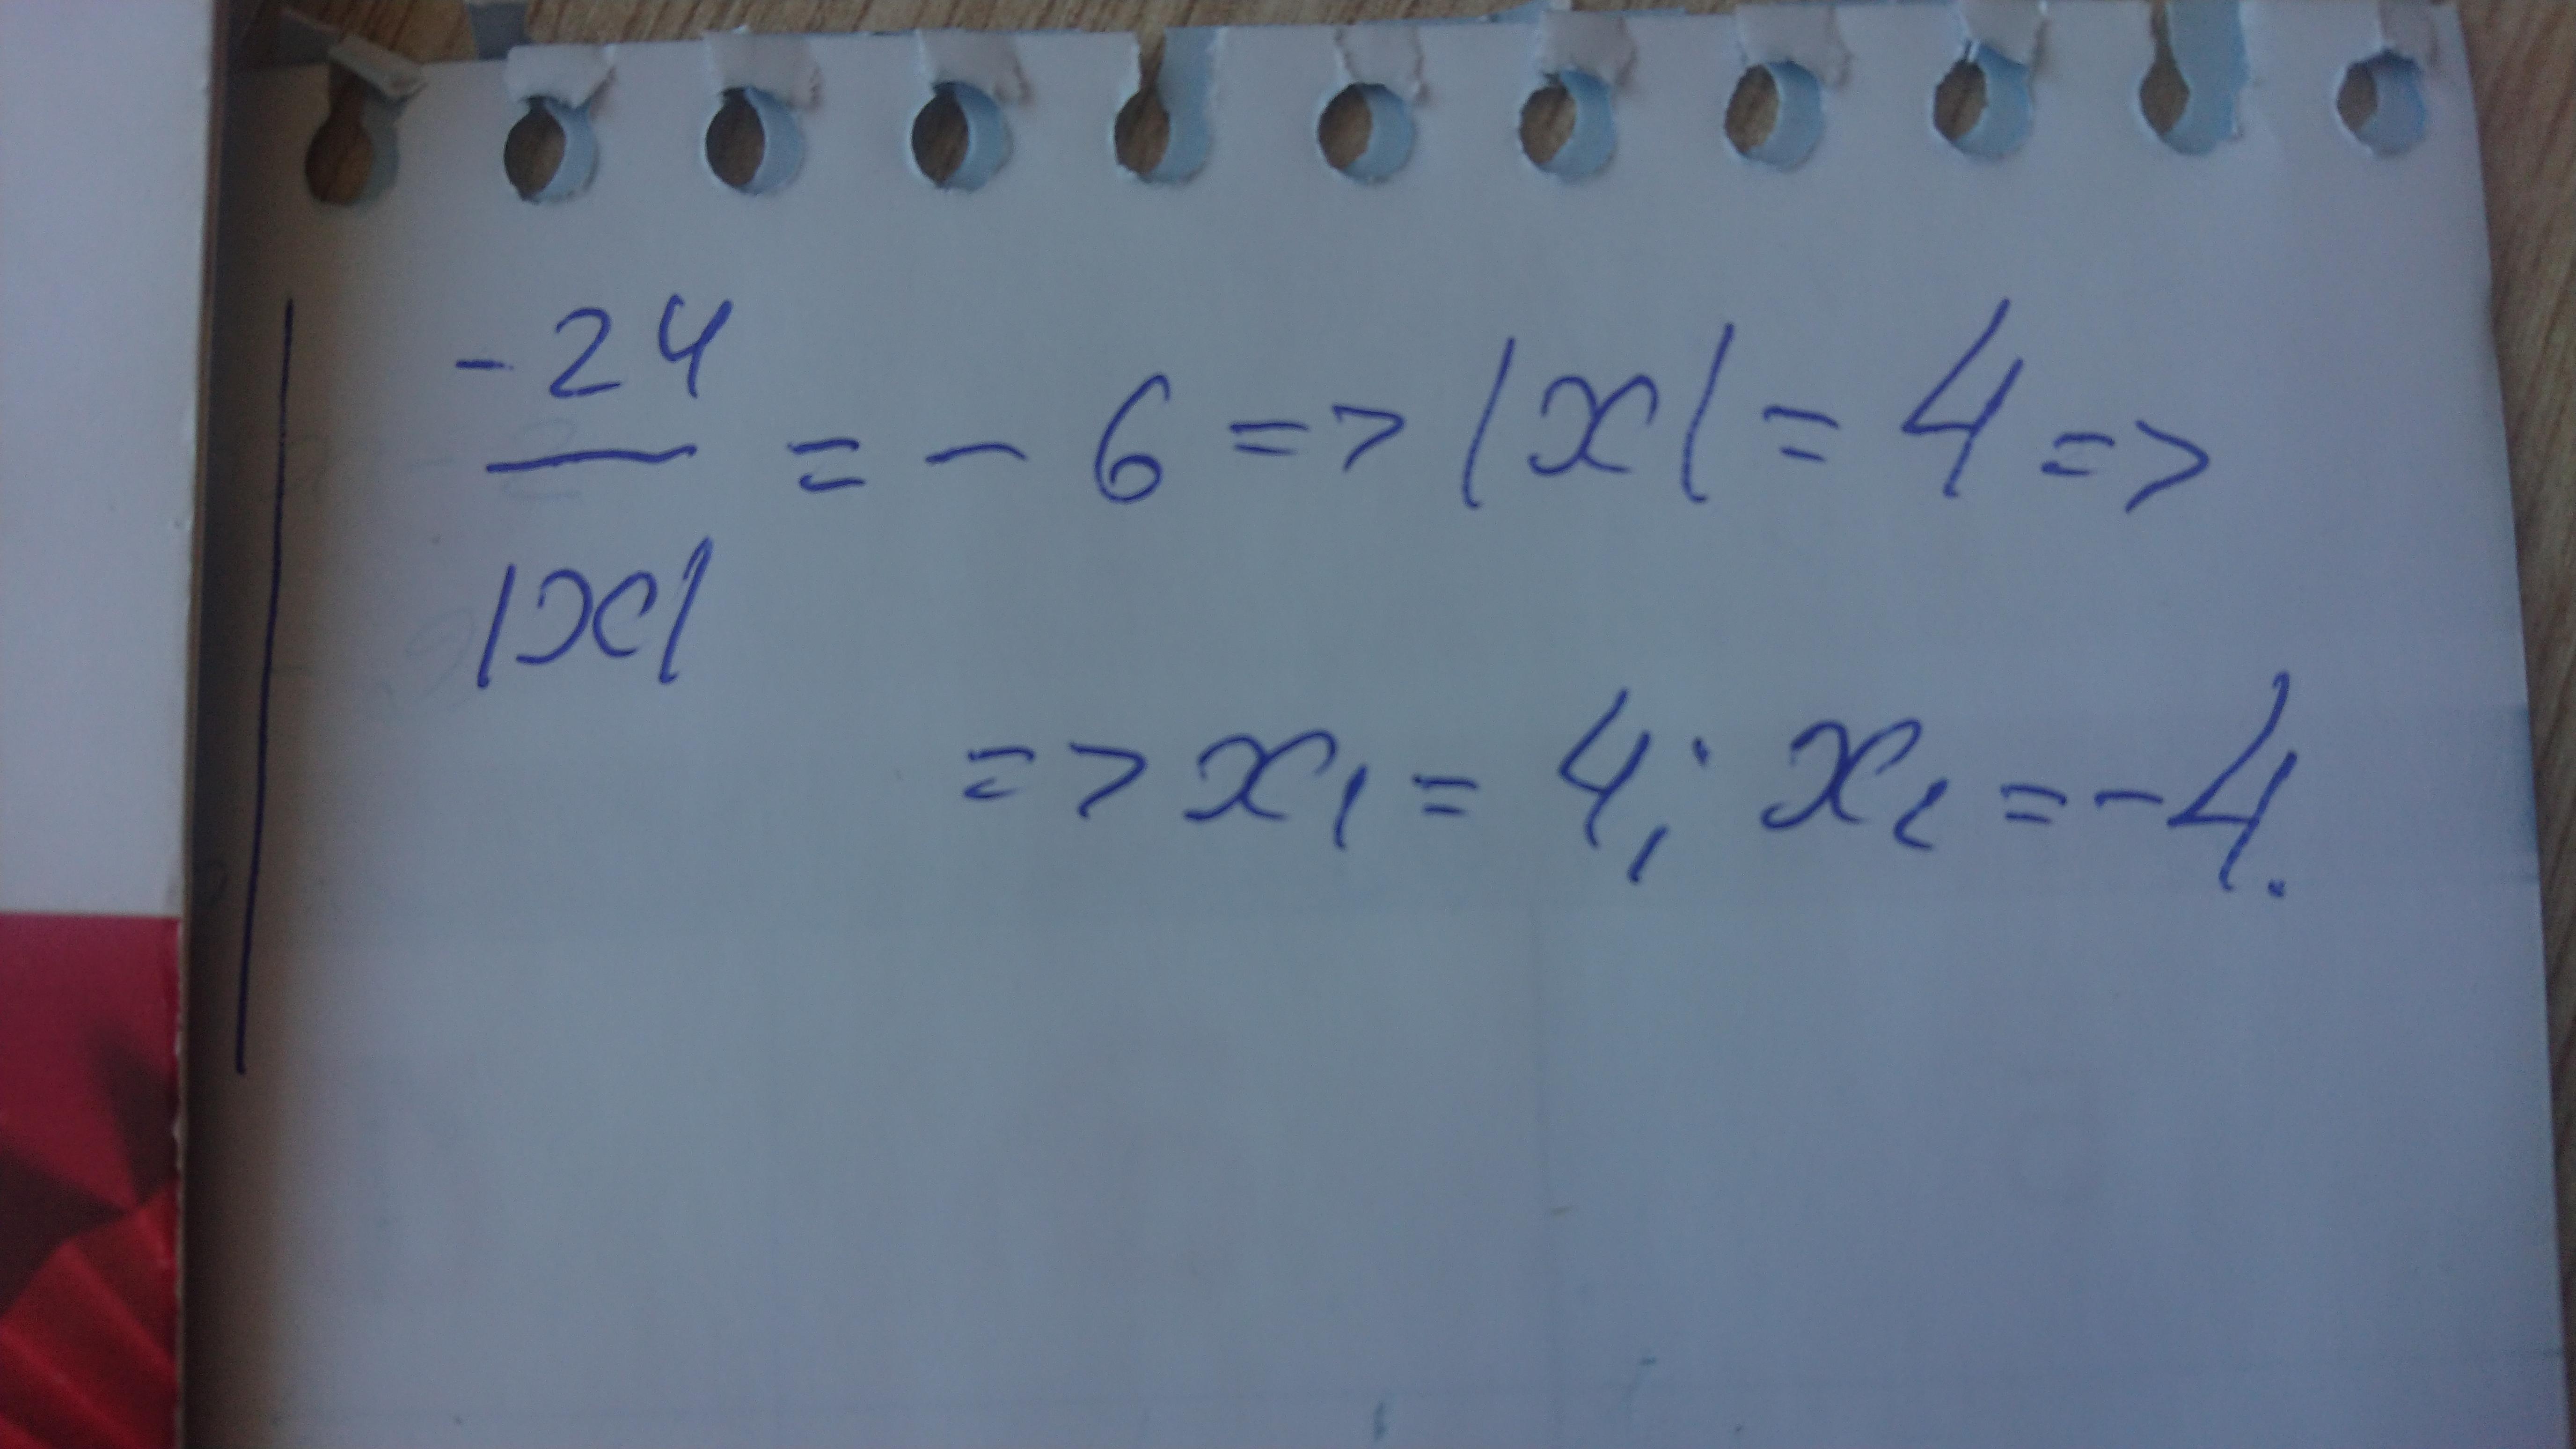 -24/|x| = - 6 => |x| = 4 =>
=> x₁ = 4; x₂ = -4.